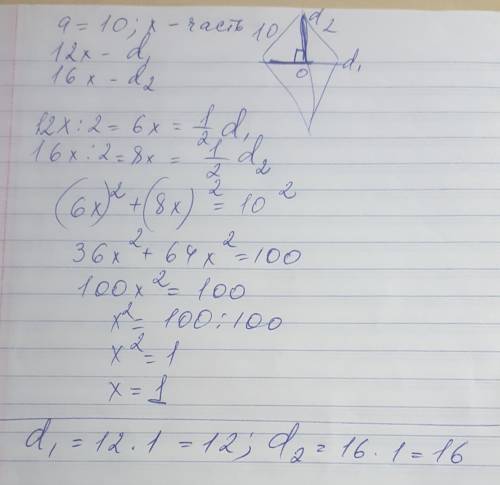 a = 10; x - часть
12x - d₁
16x - d₂
10 d₂
O d₁
12x : 2 = 6x = 1/2 d₁
16x : 2 = 8x = 1/2 d₂
(6x)² + (8x)² = 10²
36x² + 64x² = 100
100x² = 100
x² = 100 : 100
x² = 1
x = 1
d₁ = 12 · 1 = 12; d₂ = 16 · 1 = 16